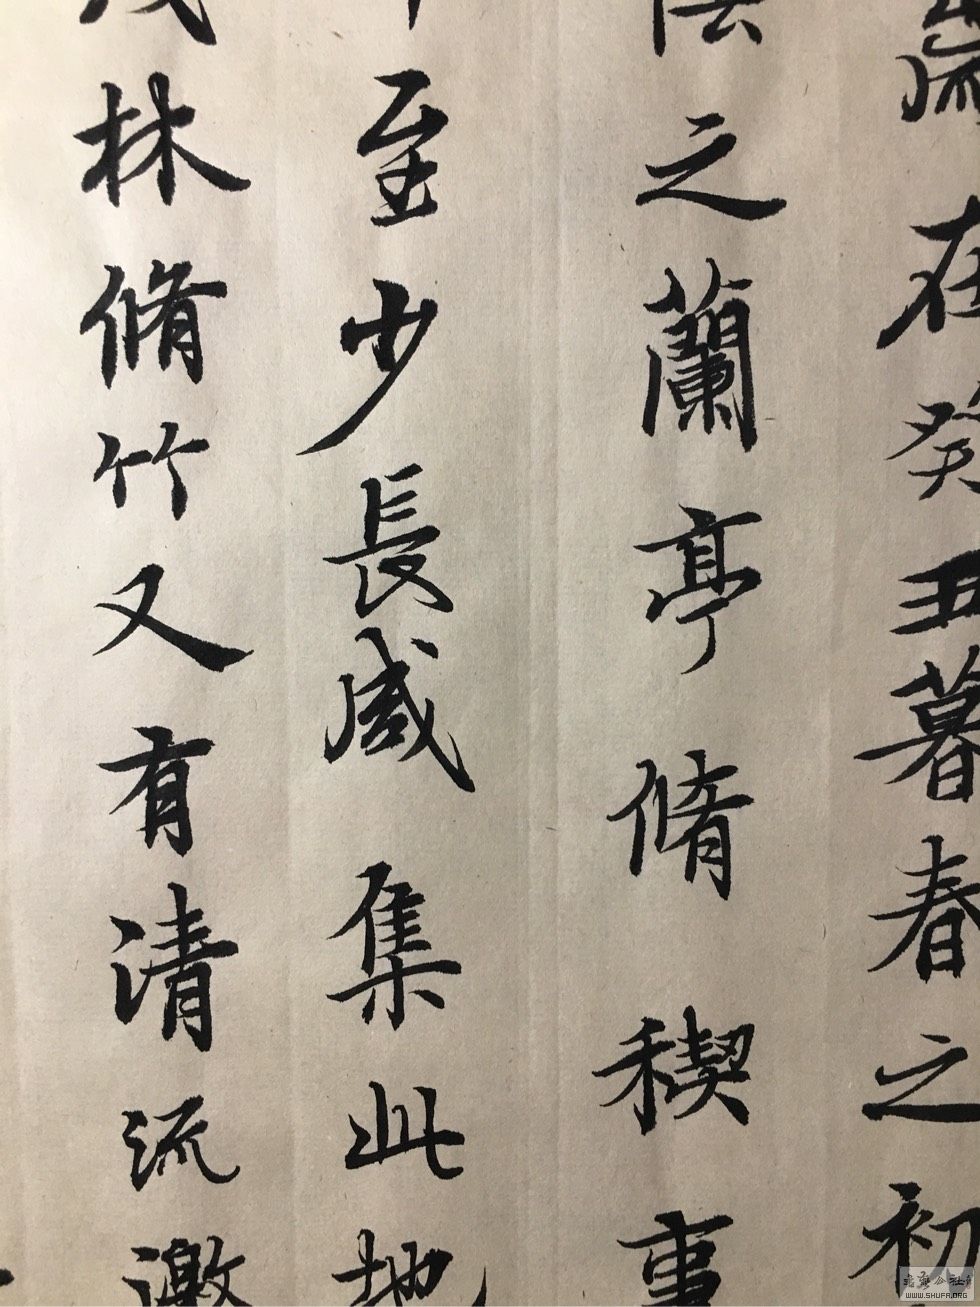 在癸丑暮春之初
之蘭亭脩稧事
至少長咸集此地
林脩竹又有清流激
WWW.SHUFA.ORG